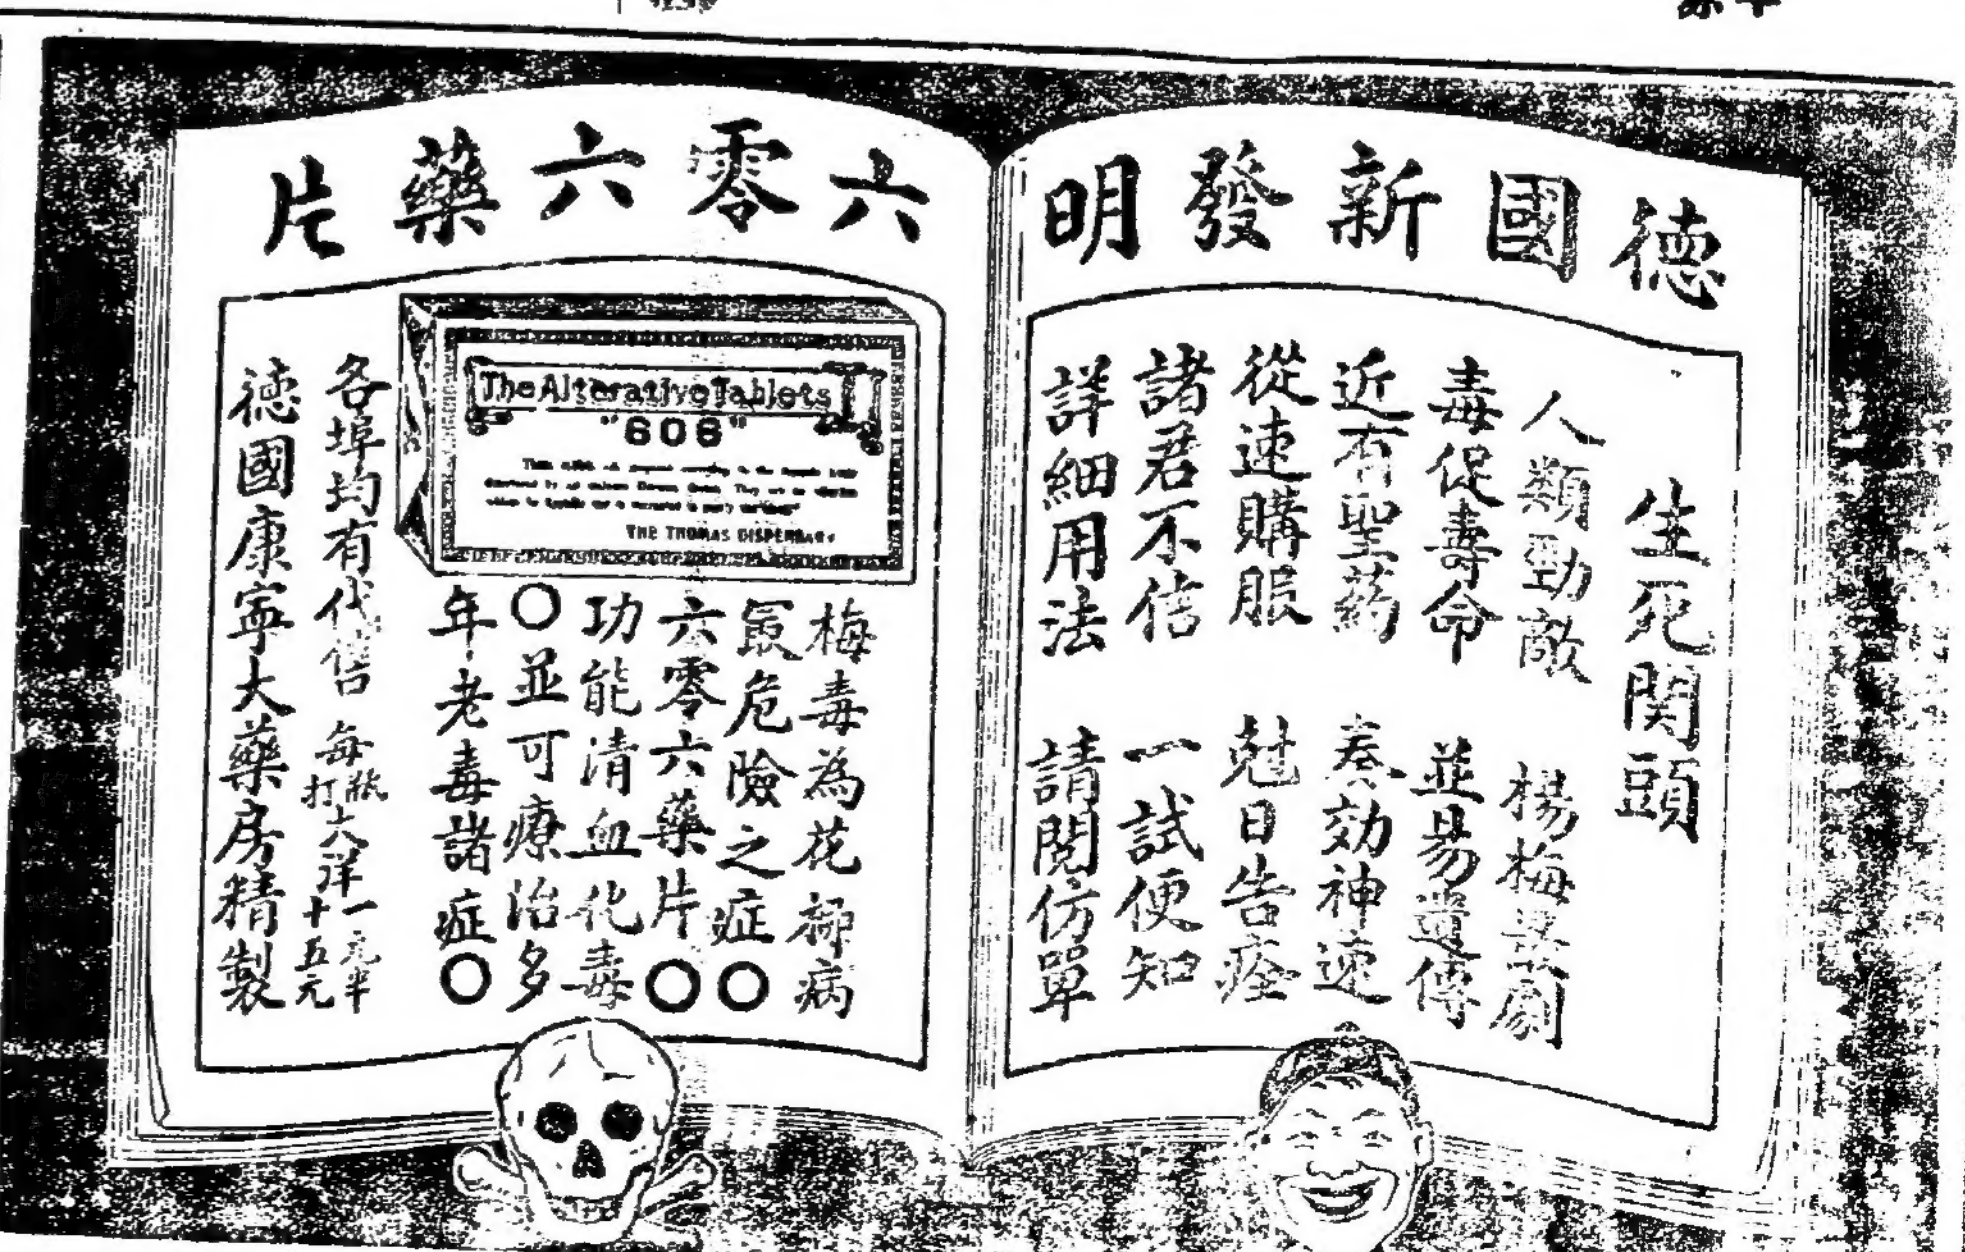 德國新發明
生死関頭
人類勁敵 楊梅最劇
毒促壽命 並易遺傳
近有聖药 奏効神速
從速購服 尅日告痊
諸君不信 一試便知
詳細用法 請閱仿單
六零六藥片
The Alterative Tablets
"606"
THE THOMAS DISPENSARY
梅毒為花柳病
最危險之症〇
六零六藥片〇
功能清血化毒
〇並可療治多
年老毒諸症〇
各埠均有代售 每瓶大洋一元半
打十五元
德國康寧大藥房精製